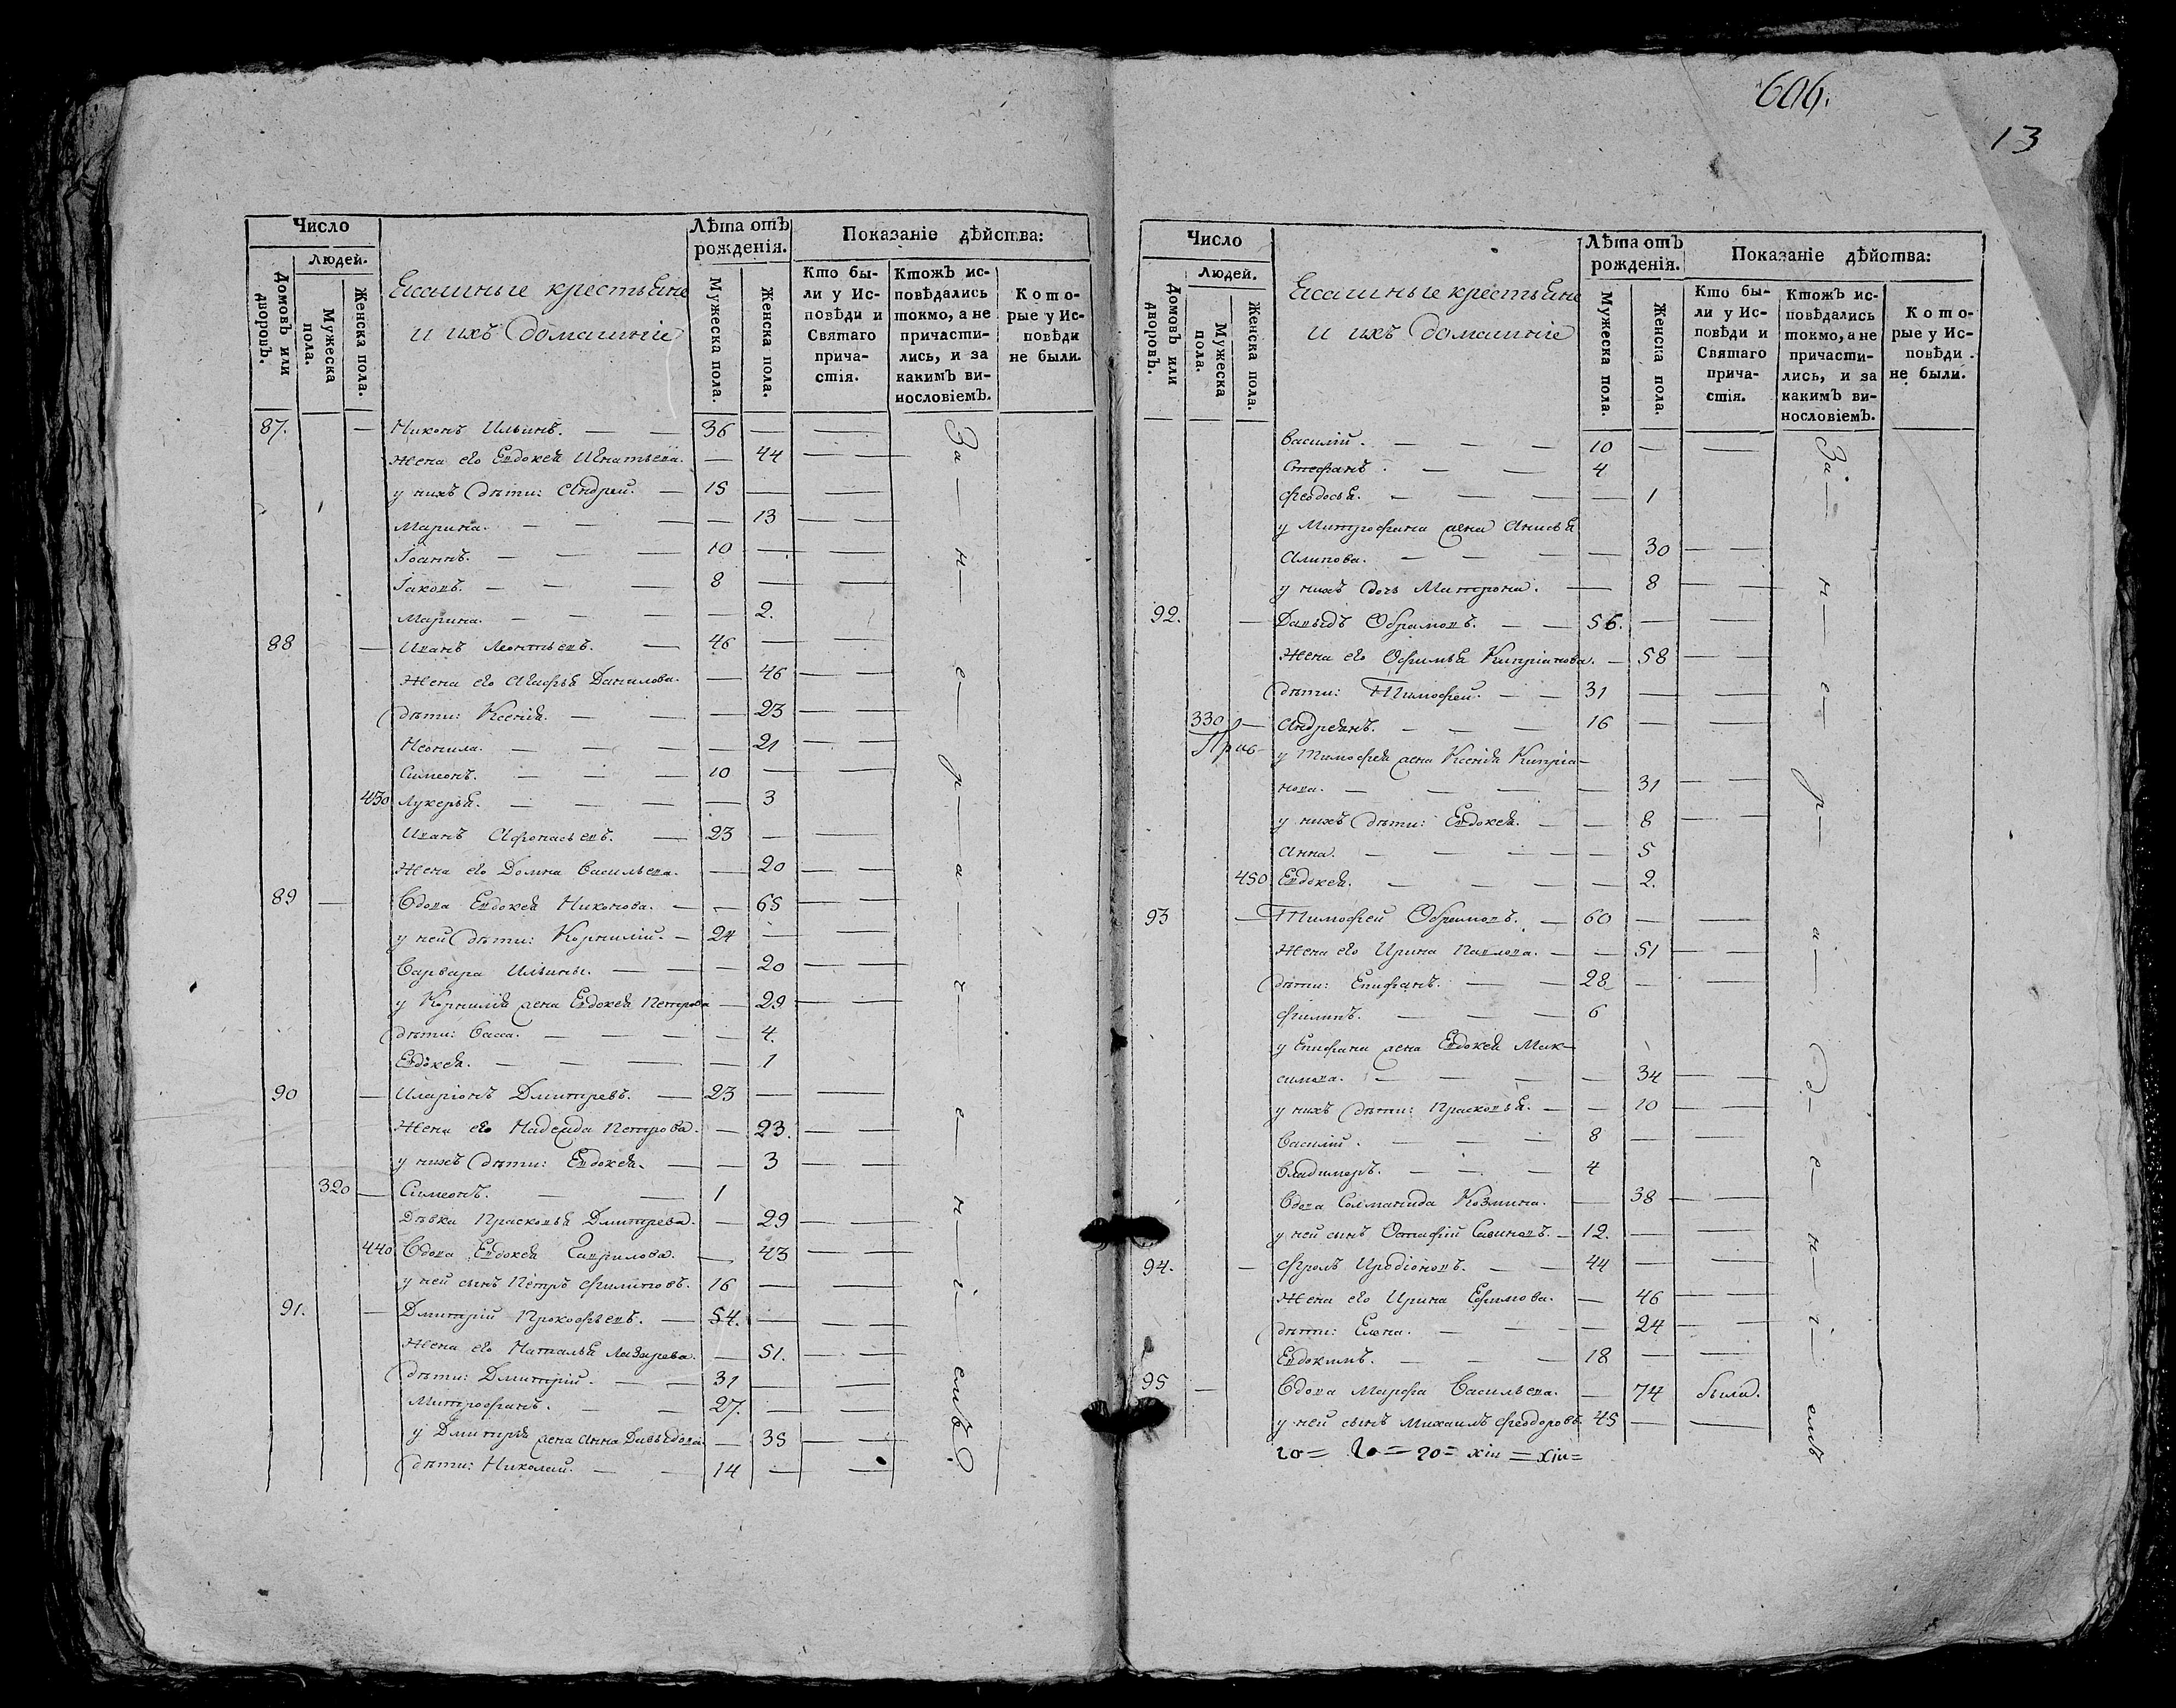 606.
13
Число
Людей.
Домовъ или дворовъ.
Мужеска пола.
Женска пола.
крестьяне
и ихъ домашніе
Лѣта отъ рожденія.
Мужеска пола.
Женска пола.
Показаніе дѣйства:
Кто были у Исповѣди и Святаго причастія.
Ктожъ исповѣдались токмо, а не причастились, и за какимъ винословіемъ.
Которые у Исповѣди не были.
87. — Никонъ Ильинъ. — — 36 — —
Жена его Евдокея Игнатьева. — 44 — —
у нихъ дѣти: Андрей. — 15 — —
Марина. — — — — 13 — —
Іоаннъ. — — — 10 — —
Іаковъ. — — — 8 — —
Марина. — — — — 2.
88 — Иванъ Леонтьевъ. — 46 — —
Жена его Агафья Данилова. — 46 — —
дѣти: Ксенія. — — — 23 — —
Неонила. — — — — 21 — —
Симеонъ. — — — 10 — —
430 Лукерья. — — — — 3
Иванъ Афонасьевъ. — 23 — —
Жена его Домна Васильева. — 20 — —
89 — Вдова Евдокея Никонова. — — 65 — —
у ней дѣти: Корнилій. — 24 — —
Варвара Ильины. — — — 20 — —
у Корнилія жена Евдокея Петрова — 29 — —
дѣти: Васса. — — — — 4.
Евдокея. — — — — 1
90 — Иларіонъ Дмитревъ. — 23 — —
Жена его Надежда Петрова. — 23. — —
у нихъ дѣти: Евдокея. — — 3 — —
320 — Симеонъ. — — 1
Дѣвка Прасковья Дмитрева. — 29 — —
440 Вдова Евдокея Гаврилова. — 43 — —
у ней сынъ Петръ Филиповъ. 16 — —
91. — Дмитрій Прокофьевъ. — 54. — —
Жена его Наталья Лазарева. — 51. — —
дѣти: Дмитрій. — — 31 — —
Митрофанъ. — — 27. — —
у Дмитрія жена Анна Давыдова — 35 — —
дѣти: Николай. — — 14 — —
За — н — е — р — а — ч — е — н — і — емъ
Число
Людей.
Домовъ или дворовъ.
Мужеска пола.
Женска пола.
крестьяне
и ихъ домашніе
Лѣта отъ рожденія.
Мужеска пола.
Женска пола.
Показаніе дѣйства:
Кто были у Исповѣди и Святаго причастія.
Ктожъ исповѣдались токмо, а не причастились, и за какимъ винословіемъ.
Которые у Исповѣди не были.
Василій. — — — 10 — —
Стефанъ. — — 4
Феодосья. — — — — 1
у Митрофана жена Анисья
Алипова. — — — — 30 — —
у нихъ дочь Матрона. — 8 — —
92. — Давыдъ Обрамовъ. — — 56. — —
Жена его Офимья Кипріанова. — 58 — —
дѣти: Тимофей. — — 31 — —
330 — Андреянъ. — — — 16 — —
у Тимофея жена Ксенія Кипріа-
нова. — — — — 31 — —
у нихъ дѣти: Евдокея. — — 8 — —
Анна. — — — — — 5
450 Евдокея. — — — — 2.
93 — Тимофей Обрамовъ. — 60 — —
Жена его Ирина Павлова. — — 51 — —
дѣти: Епифанъ. — — 28 — —
Филипъ. — — — 6
у Епифана жена Евдокея Мак-
симова. — — — — 34 — —
у нихъ дѣти: Прасковья. — — 10 — —
Василій. — — — 8 — —
Владимеръ. — — — 4
Вдова Соломанида Козмина. — 38 — —
у ней сынъ Остафій Савиновъ. — 12. — —
94. — Фролъ Иродіоновъ. — — 44 — —
Жена его Ирина Ефимова. — 46 — —
дѣти: Елена. — — — — 24 — —
Евдокимъ. — — — 18 — —
95 — Вдова Марфа Васильева. — 74 была.
у ней сынъ Михаилъ Феодоровъ. 45 — —